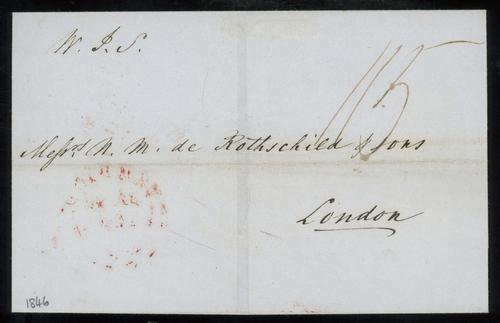 W. J. S.
1/5
Messrs N. M. de Rothschild & Sons
London
1846